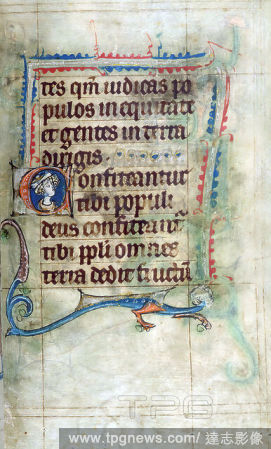 tes qm iudicas po
pulos in equitate
et gentes in terra
dirigis.
Confiteantur
tibi populi
deus confiteant
tibi ppli omnes
terra dedit fructu
TPG
www.tpgnews.com/ 達志影像